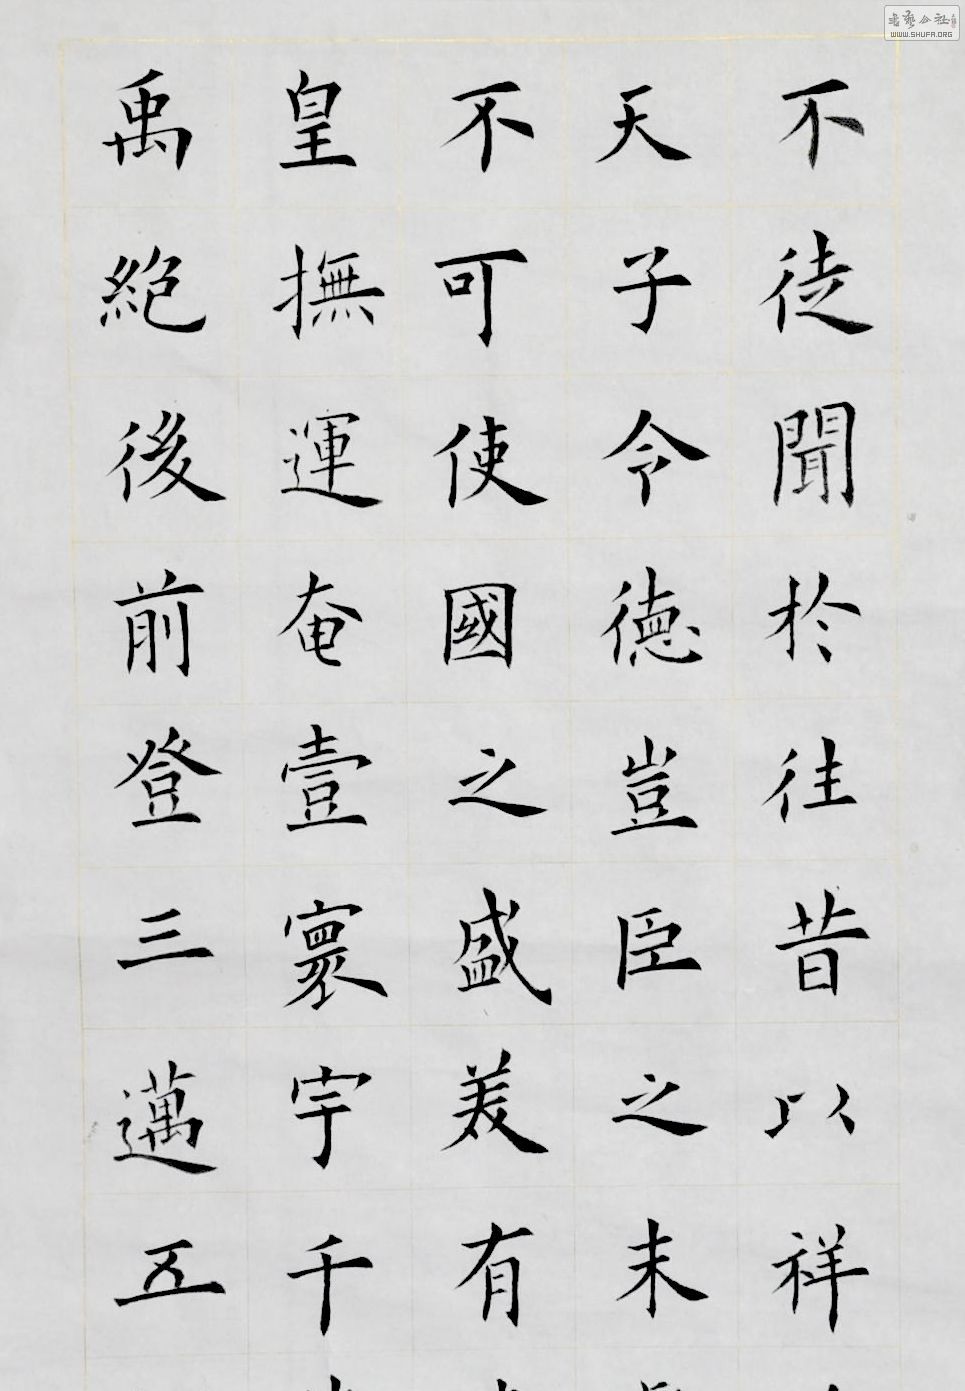 不徒聞於往昔以祥
天子令德豈臣之末
不可使國之盛美有
皇撫運奄壹寰宇千
禹絕後前登三邁五
書藝公社
WWW.SHUFA.ORG